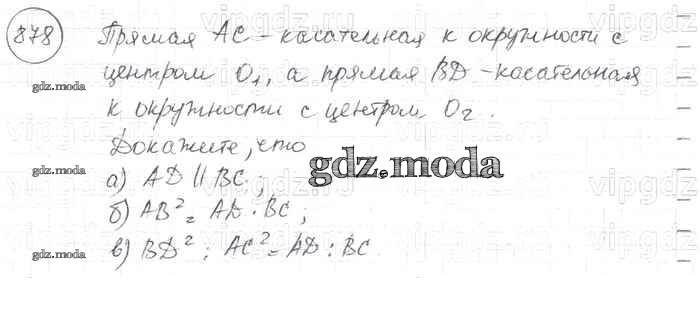 878 Прямая AC - касательная к окружности с
центром O₁, а прямая BD - касательная
к окружности с центром O₂.
Докажите, что
а) AD || BC;
б) AB² = AD · BC;
в) BD² : AC² = AD : BC.
gdz.moda
gdz.moda
gdz.moda
gdz.moda
vipgdz.ru